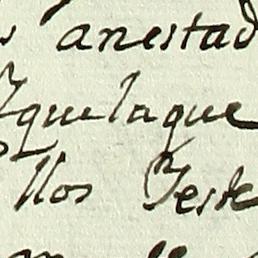 s anestad
Yquelaque
llos Teste